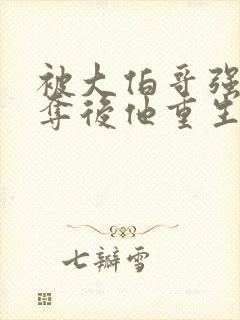 被大伯哥强
夺後他重生
七瓣雪